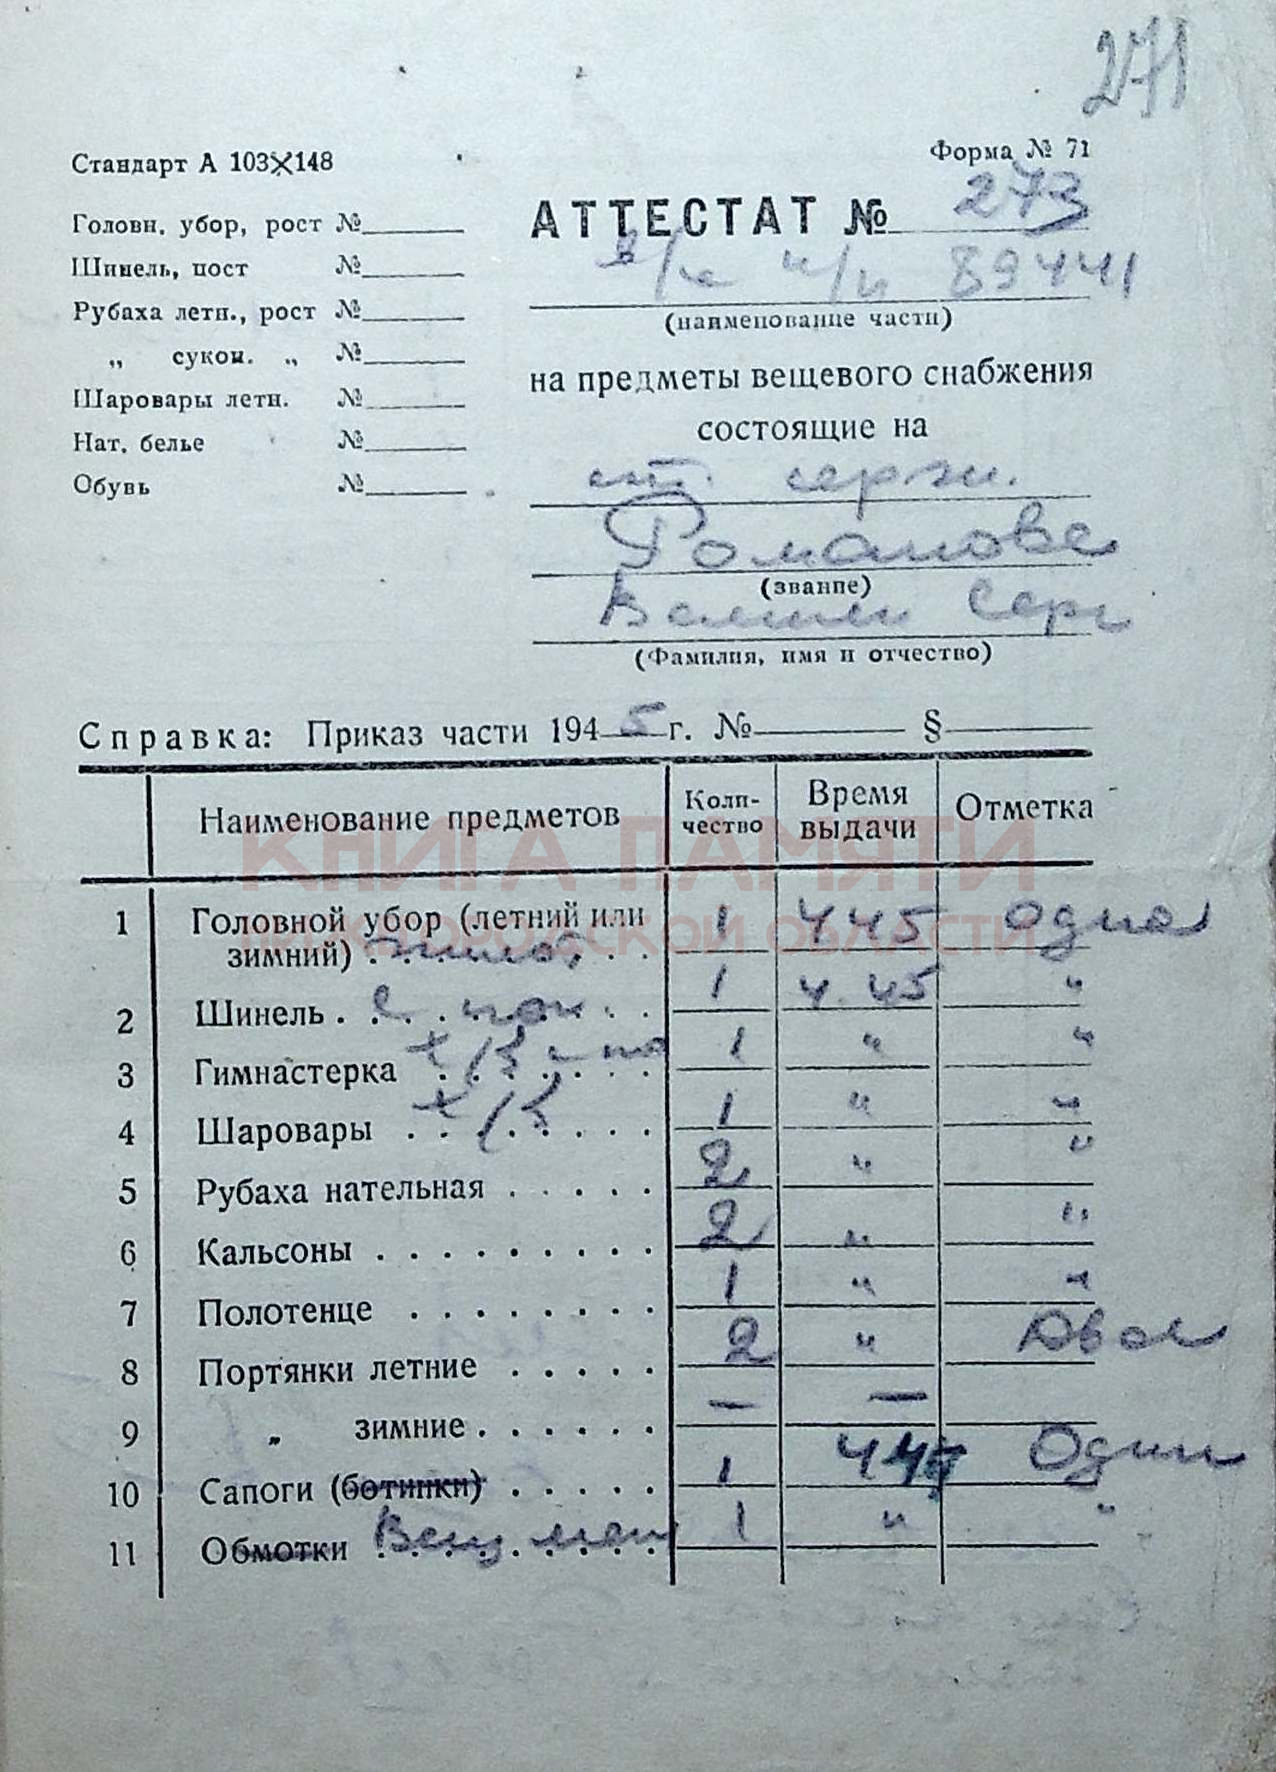 271
Стандарт А 103X148
Форма № 71
Головн. убор, рост №
Шинель, пост №
Рубаха летн., рост №
„ сукон. „ №
Шаровары летн. №
Нат. белье №
Обувь №
АТТЕСТАТ № 273
в/ч п/п 89441
(наименование части)
на предметы вещевого снабжения
состоящие на
ст. сержн.
Романова
(звание)
Серг
(Фамилия, имя и отчество)
Справка: Приказ части 1945 г. № §
Наименование предметов Количество Время выдачи Отметка
КНИГА ПАМЯТИ
НИЖЕГОРОДСКОЙ ОБЛАСТИ
1 Головной убор (летний или 1 4 45 одна
зимний) . . . . . .
2 Шинель . . . . . . 1 4.45 "
3 Гимнастерка х/б 1 " "
4 Шаровары х/б 1 " "
5 Рубаха нательная . . . . . 2 " "
6 Кальсоны . . . . . . . . . 2 " "
7 Полотенце . . . . . . . . 1 " "
8 Портянки летние . . . . . 2 " Двое
9 „ зимние . . . . . . — —
10 Сапоги (ботинки) . . . . . 1 4 45 Один
11 Обмотки Вещ меш 1 " "